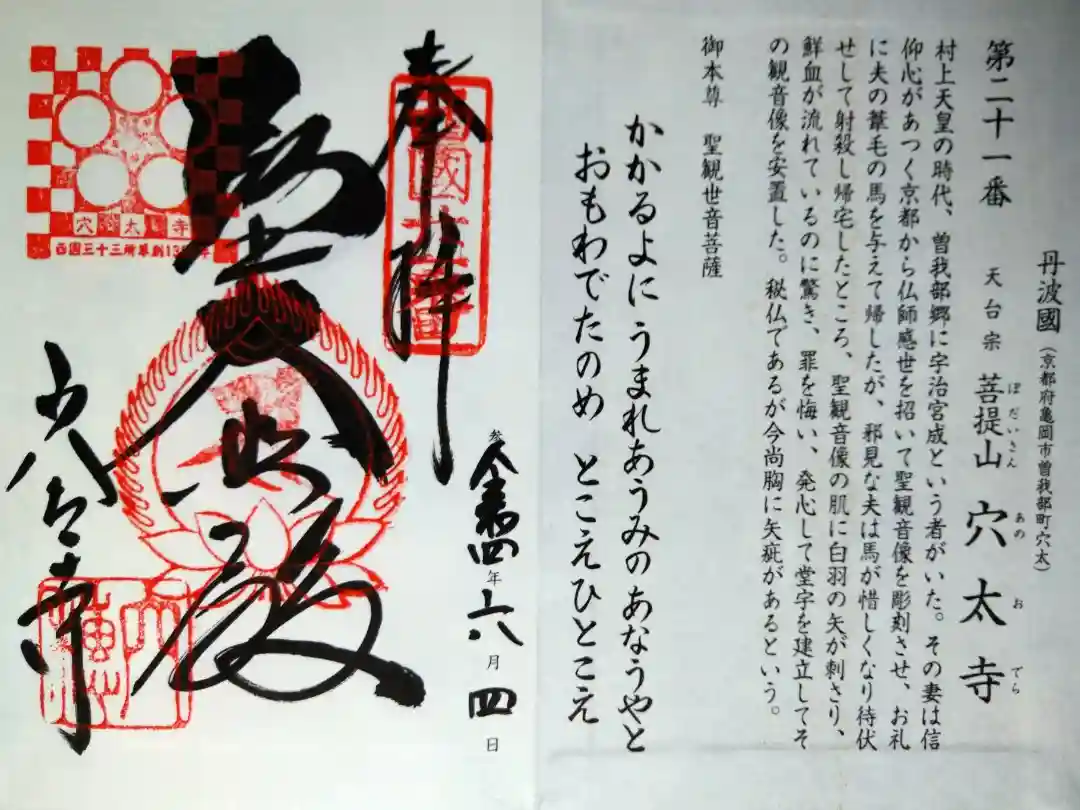 丹波國（京都府亀岡市曽我部町穴太）
第二十一番 天台宗 菩提山 穴太寺
ぼだいさん あのおでら
村上天皇の時代、曽我部郷に宇治宮成という者がいた。その妻は信
仰心があつく京都から仏師感世を招いて聖観音像を彫刻させ、お礼
に夫の葦毛の馬を与えて帰したが、邪見な夫は馬が惜しくなり待伏
せして射殺し帰宅したところ、聖観音像の肌に白羽の矢が刺さり、
鮮血が流れているのに驚き、罪を悔い、発心して堂宇を建立してそ
の観音像を安置した。秘仏であるが今尚胸に矢疵があるという。
御本尊 聖観世音菩薩
かかるよに うまれあうみの あなうやと
おもわでたのめ とこえひとこえ
奉拝
令和四年六月四日
大悲殿
穴太寺
穴太寺
西国三十三所草創1300年